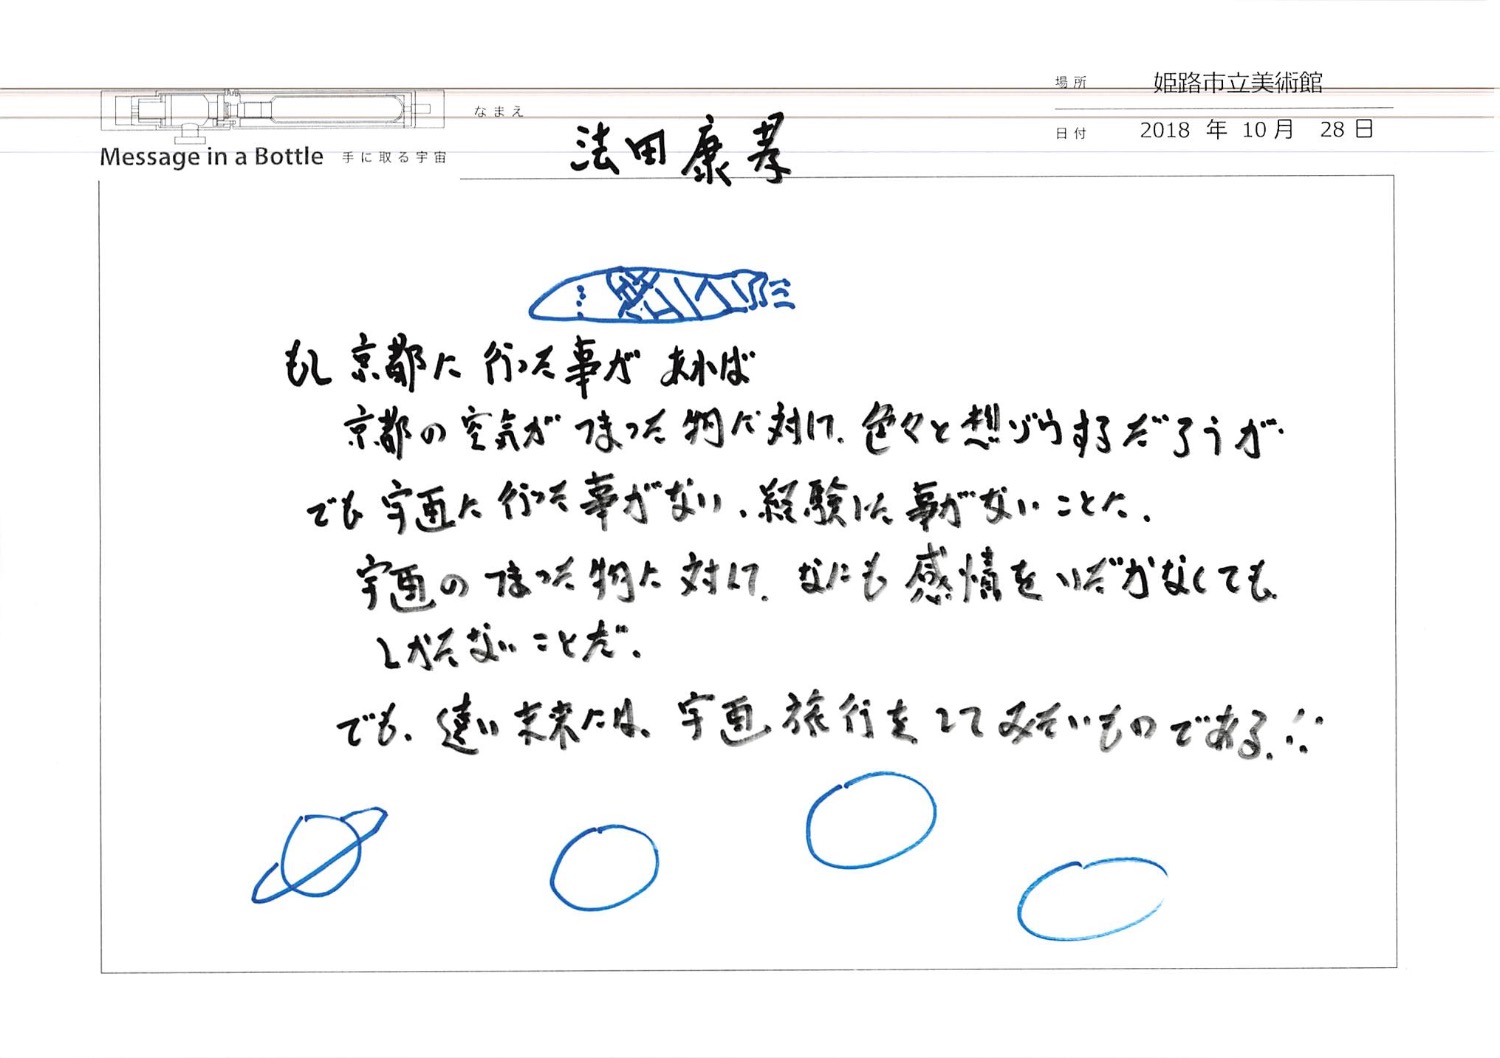 場所 姫路市立美術館
なまえ 法田康孝
日付 2018 年 10 月 28 日
Message in a Bottle 手に取る宇宙
もし京都に行った事があれば
京都の空気がつまった物に対して、色々と想ゾウするだろうが、
でも宇宙に行った事がない、経験した事がないことに、
宇宙のつまった物に対して、なにも感情をいだかなくても、
しかたないことだ。
でも、遠い未来には、宇宙旅行をしてみたいものである。